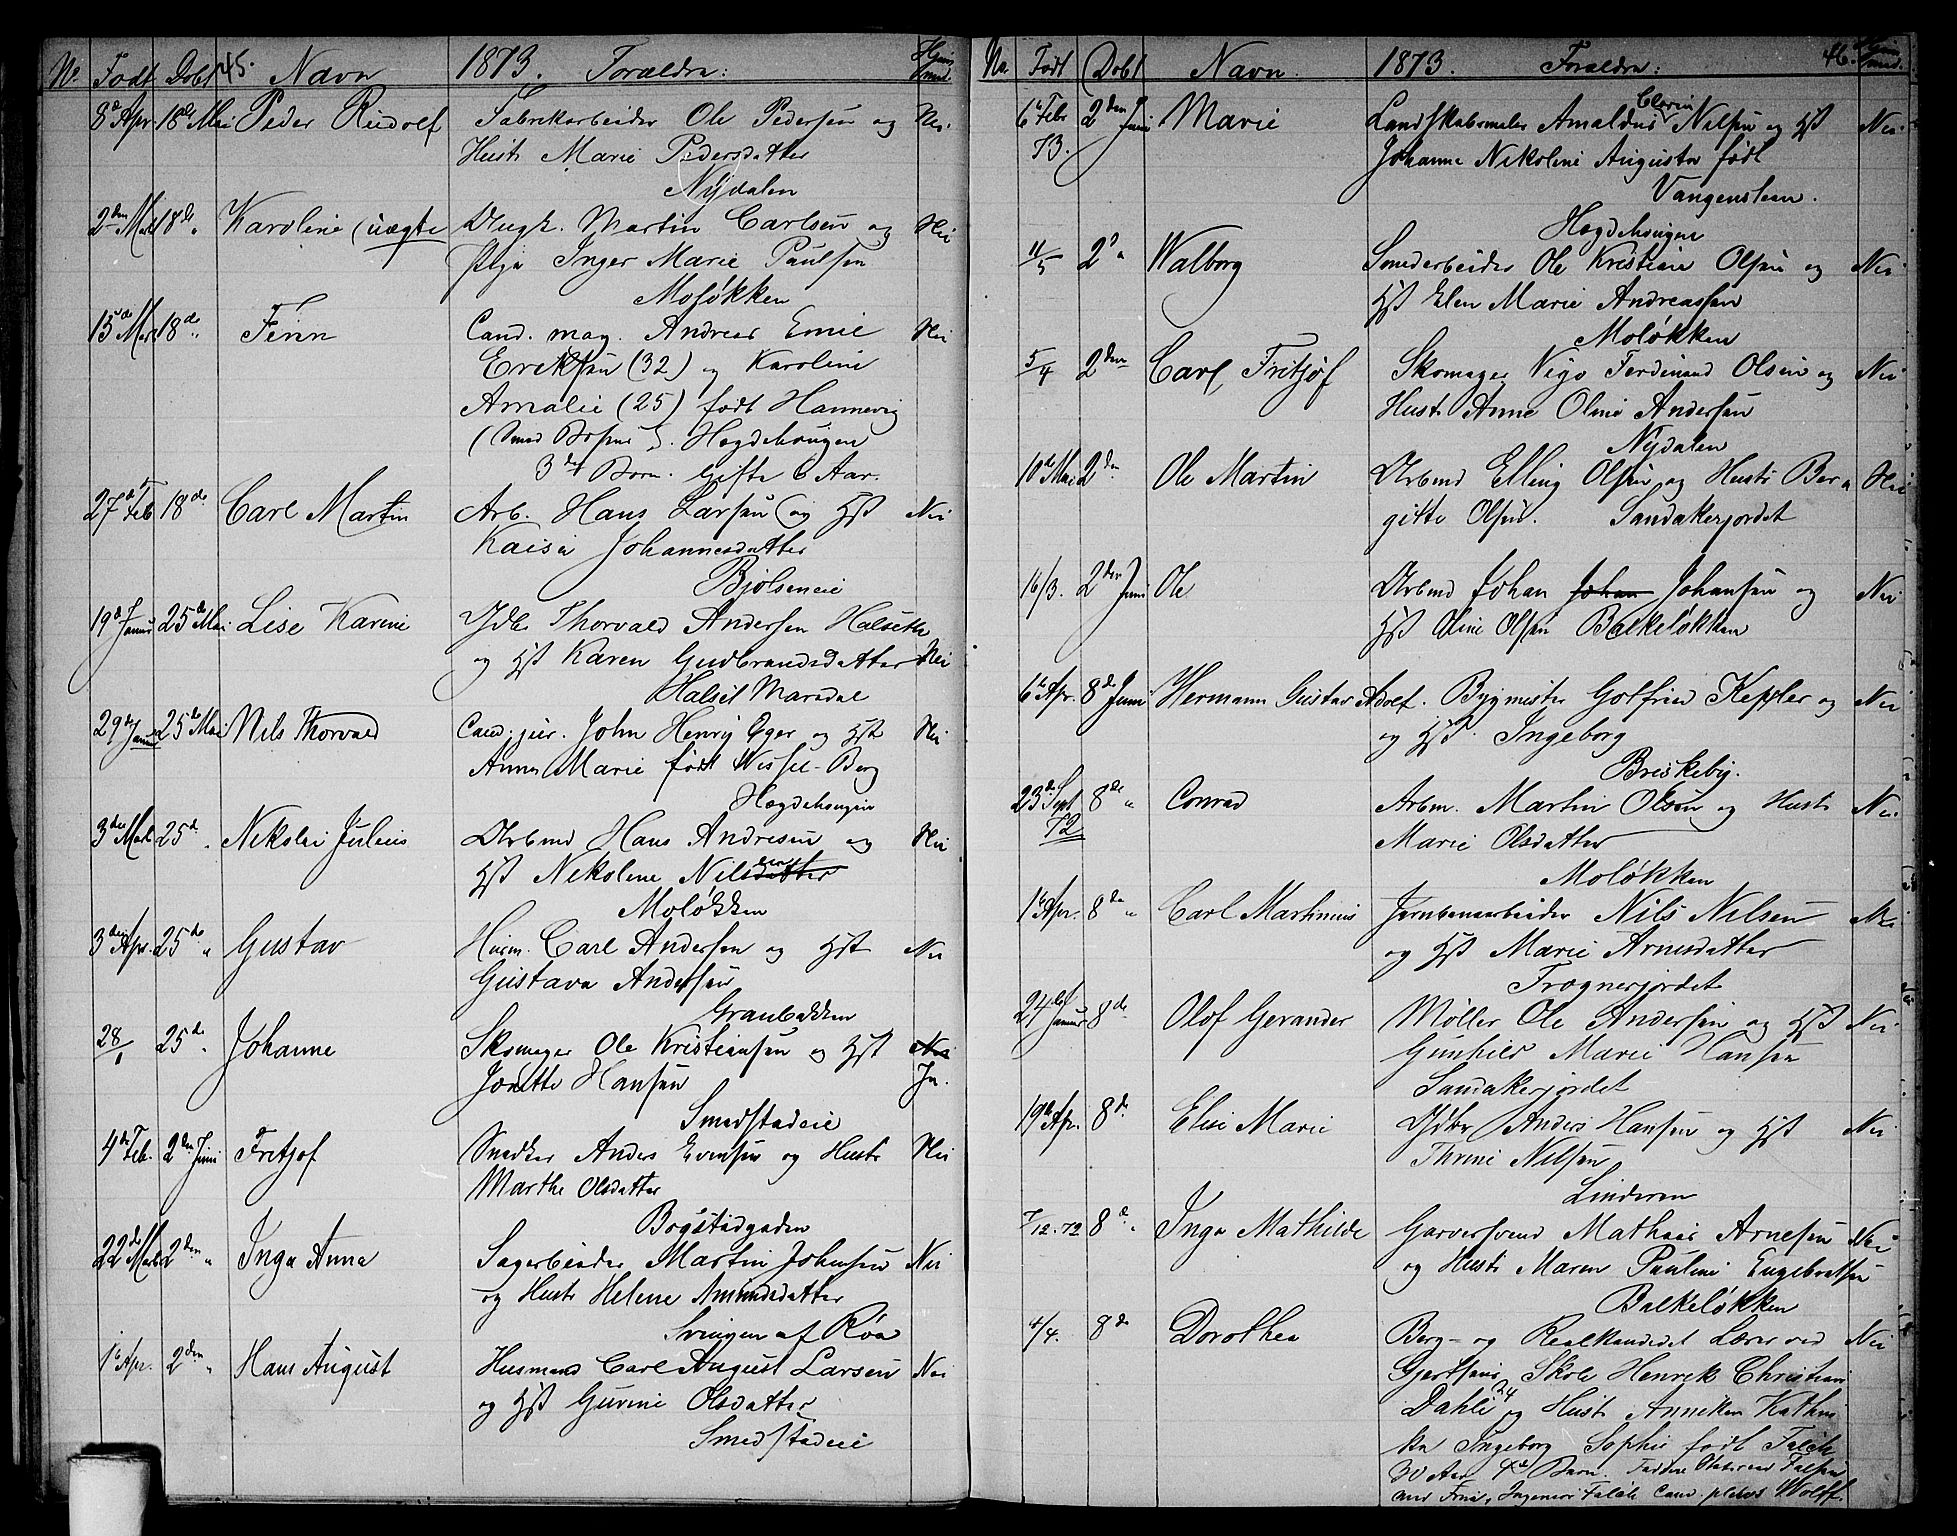 No. Født Døbt 45. Navn 1873. Forældre: Hjem
8de Apr. 18de Mai Peder Rudolf Fabrikarbeider Ole Pedersen og Nei.
Hustr Marie Pedersdatter
Nydalen
2den Marts 18de " Karoline (uægte Ungk. Martin Carlsen og Nei
Pige Inger Marie Paulsen
Moløkken
15de Mars 18de " Finn Cand. mag. Andreas Emil Nei
Eriksen (32) og Karoline
Amalie (25) født Hannevig
Hægdehougen
3de Barn. Gifte 6 Aar.
27de Feb 18de Carl Martin Arb. Hans Larsen og Hst Nei
Kaisa Johannesdatter
Bjølseneie
19de Januar 25de Mai Lise Karine Gdbr Thorvald Andersen Halseth
og Hst Karen Gudbrandsdatter Nei
Halset Maridal
29de Januar 25de Mai Nils Thorvald Cand. jur. John Henry Eger og Hst Nei
Anna Marie født Wessel-Berg
Hægdehougen
3den Marts 25de " Nikolai Julius Arbmd Hans Andresen og Nei
Hst Nikoline Nilsdatter
Moløkken
3den Apr. 25de " Gustav Husm. Carl Andersen og Hst Nei
Gustava Andersen
Graubækken
28/1 25de " Johanne Skomager Ole Kristiansen og Hst Nei
Jonette Hansen Ja.
Smedstadeie
4de Feb. 2den Juni Fritjof Snedker Anders Evensen og Hustr Nei
Marthe Olsdatter
Bogstadgaden
22de Marts 2den " Inga Anna Sagarbeider Martin Johnsen Nei
og Hustr Helene Amundsdatter
Svingen af Røa
1ste Apr. 2den " Hans August Husmand Carl August Larsen Nei
og Hst Gurine Olsdatter
Smedstadeie
No. Født Døbt Navn. 1873. Forældre: 46.
6te Febr 2den Juni Marie Landskabsmaler Amaldus Clarin Nielsen og Hst Nei
73. Johanne Nikoline Augusta født
Vangensteen.
Hægdehougen
11/5 2den " Walborg Smedarbeider Ole Kristian Olsen og Nei
Hst Elen Marie Andreassen
Moløkken
5/4 2den Carl Fritjof Skomager Vigo Ferdinand Olsen og Nei
Hustr Anne Oline Andersen
Nydalen
10de Mai 2den " Ole Martin Arbmd Elling Olsen og Hustr Ber Nei
gitte Olsen. Sandakerjordet
16/3. 2den Juni Ole Arbmd Johan Johan Johansen og Nei
Hst Oline Olsen Balkeløkken
6te Apr. 8de Juni Hermann Gustav Adolf. Bygmester Gotfried Keppler og Nei
og Hst. Ingeborg
Briskeby.
23de Sept 8de " Conrad Arbm. Martin Olsen og Hustr Nei
72 Marie Olsdatter
Moløkken
1ste Apr. 8de " Carl Martinius Jernbanearbeider Nils Nilsen Nei
og Hst Marie Arnesdatter
Frognerjordet
24de Januar 8de " Olof Gerander Møller Ole Andersen og Hst Nei
Gunhild Marie Hansen
Sandakerjordet
19de Apr. 8de Elise Marie Gdbr Anders Hansen og Hst Nei
Thrine Nilsen
Linderen
7/12.72 8de " Inga Mathilde Garversvend Mathias Arnesen Nei
og Hustr Maren Pauline Engebretsen
Balkeløkken
4/4. 8de Dorothea Berg- og Realkandidat Lærer ved Nei
Gjertsens Skole Henrik Christian
Dahl 34 og Hustr Anneken Kathri
Ingeborg Sophie født Falch
30 Aar 4de Barn.
Ingeniør Falch Cand. Wolff.